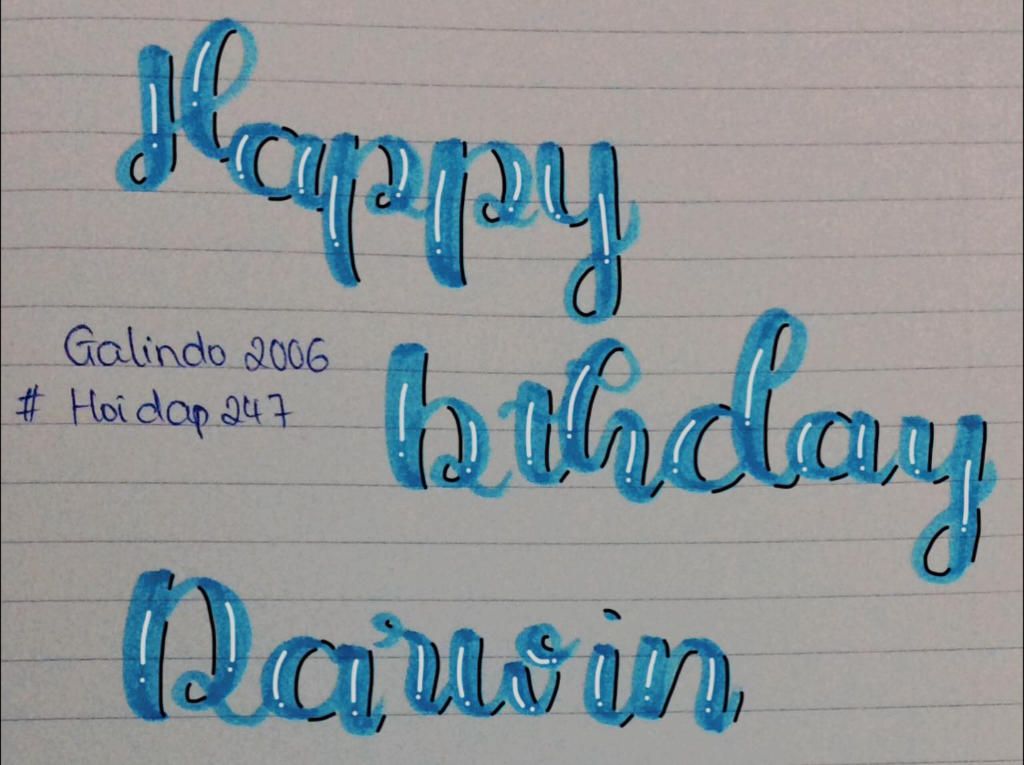 Happy
Galindo 2006
# Hoidap 247
bthday
Darwin